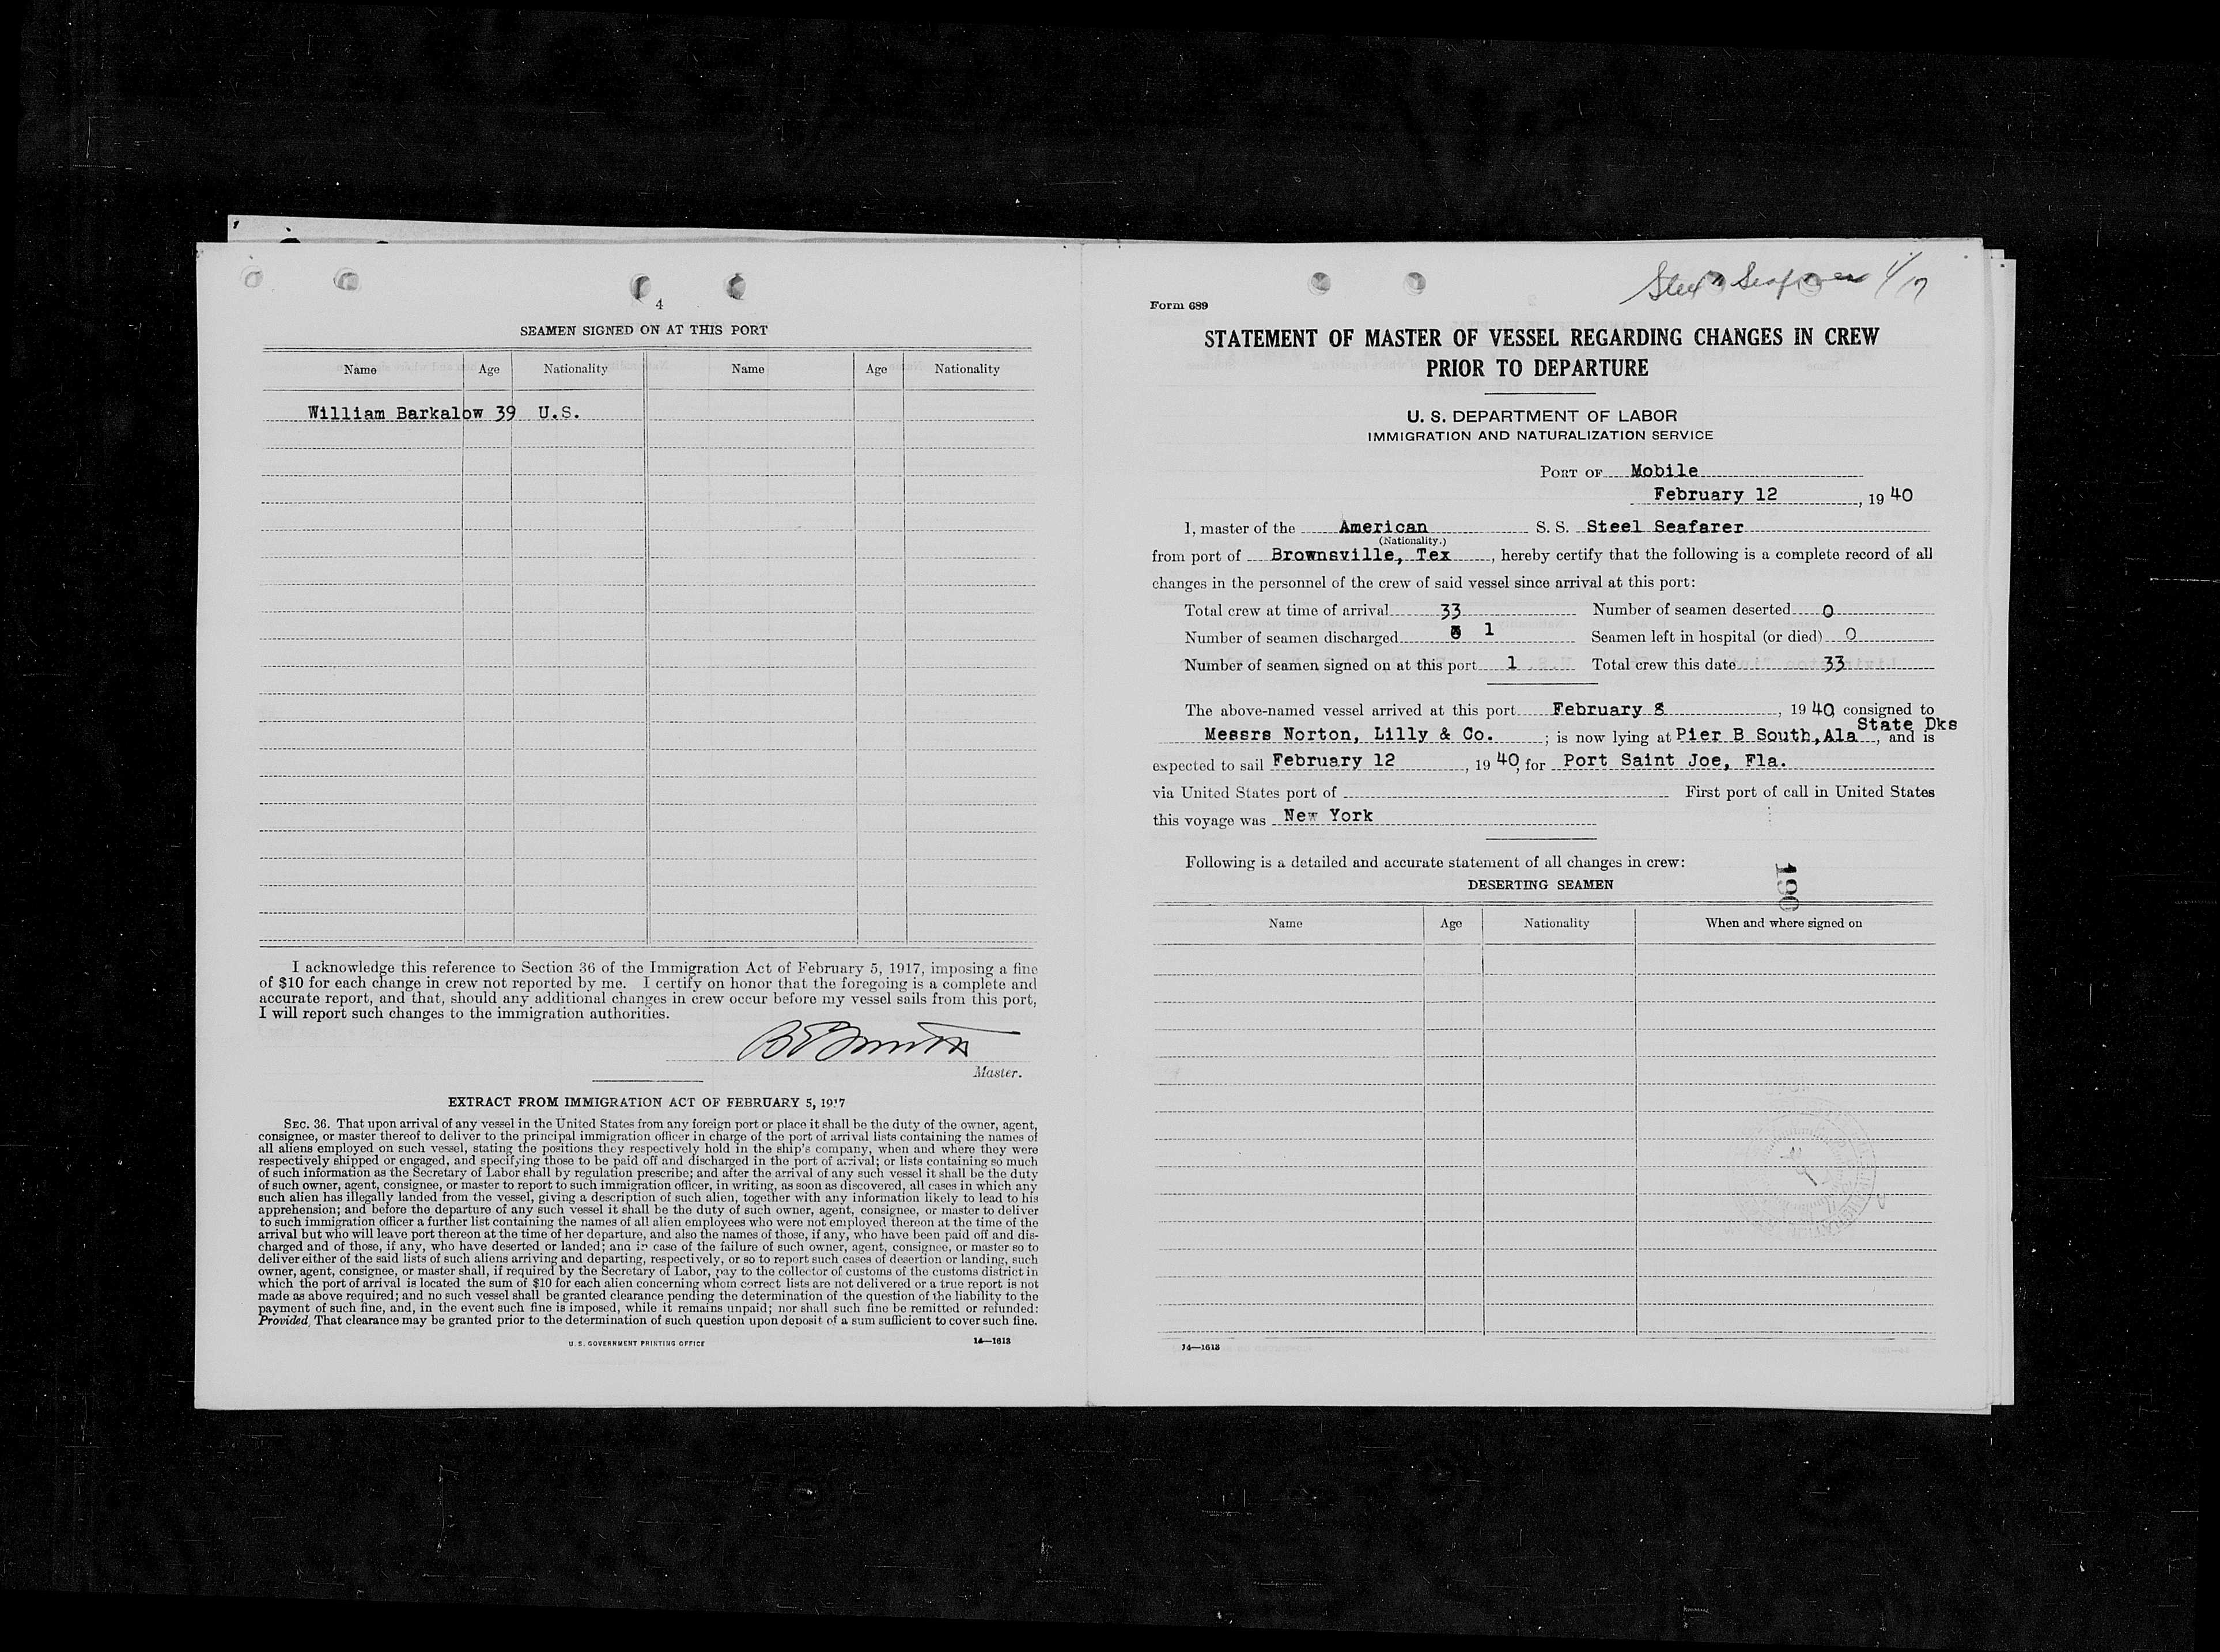 4
SEAMEN SIGNED ON AT THIS PORT
Name Age Nationality Name Age Nationality
William Barkalow 39 U.S.
I acknowledge this reference to Section 36 of the Immigration Act of February 5, 1917, imposing a fine
of $10 for each change in crew not reported by me. I certify on honor that the foregoing is a complete and
accurate report, and that, should any additional changes in crew occur before my vessel sails from this port,
I will report such changes to the immigration authorities.
Master.
EXTRACT FROM IMMIGRATION ACT OF FEBRUARY 5, 1917
SEC. 36. That upon arrival of any vessel in the United States from any foreign port or place it shall be the duty of the owner, agent,
consignee, or master thereof to deliver to the principal immigration officer in charge of the port of arrival lists containing the names of
all aliens employed on such vessel, stating the positions they respectively hold in the ship's company, when and where they were
respectively shipped or engaged, and specifying those to be paid off and discharged in the port of arrival; or lists containing so much
of such information as the Secretary of Labor shall by regulation prescribe; and after the arrival of any such vessel it shall be the duty
of such owner, agent, consignee, or master to report to such immigration officer, in writing, as soon as discovered, all cases in which any
such alien has illegally landed from the vessel, giving a description of such alien, together with any information likely to lead to his
apprehension; and before the departure of any such vessel it shall be the duty of such owner, agent, consignee, or master to deliver
to such immigration officer a further list containing the names of all alien employees who were not employed thereon at the time of the
arrival but who will leave port thereon at the time of her departure, and also the names of those, if any, who have been paid off and dis-
charged and of those, if any, who have deserted or landed; and in case of the failure of such owner, agent, consignee, or master so to
deliver either of the said lists of such aliens arriving and departing, respectively, or so to report such cases of desertion or landing, such
owner, agent, consignee, or master shall, if required by the Secretary of Labor, pay to the collector of customs of the customs district in
which the port of arrival is located the sum of $10 for each alien concerning whom correct lists are not delivered or a true report is not
made as above required; and no such vessel shall be granted clearance pending the determination of the question of the liability to the
payment of such fine, and, in the event such fine is imposed, while it remains unpaid; nor shall such fine be remitted or refunded:
Provided, That clearance may be granted prior to the determination of such question upon deposit of a sum sufficient to cover such fine.
U. S. GOVERNMENT PRINTING OFFICE 14—1613
Steel Seafarer
Form 689
STATEMENT OF MASTER OF VESSEL REGARDING CHANGES IN CREW
PRIOR TO DEPARTURE
U. S. DEPARTMENT OF LABOR
IMMIGRATION AND NATURALIZATION SERVICE
PORT OF Mobile
February 12, 1940
I, master of the American S. S. Steel Seafarer
(Nationality.)
from port of Brownsville, Tex, hereby certify that the following is a complete record of all
changes in the personnel of the crew of said vessel since arrival at this port:
Total crew at time of arrival 33 Number of seamen deserted 0
Number of seamen discharged 1 Seamen left in hospital (or died) 0
Number of seamen signed on at this port 1 Total crew this date 33
The above-named vessel arrived at this port February 8, 1940, consigned to
Messrs Norton, Lilly & Co. ; is now lying at Pier B South, Ala State Dks, and is
expected to sail February 12, 1940, for Port Saint Joe, Fla.
via United States port of First port of call in United States
this voyage was New York
Following is a detailed and accurate statement of all changes in crew:
190
DESERTING SEAMEN
Name Age Nationality When and where signed on
14—1613